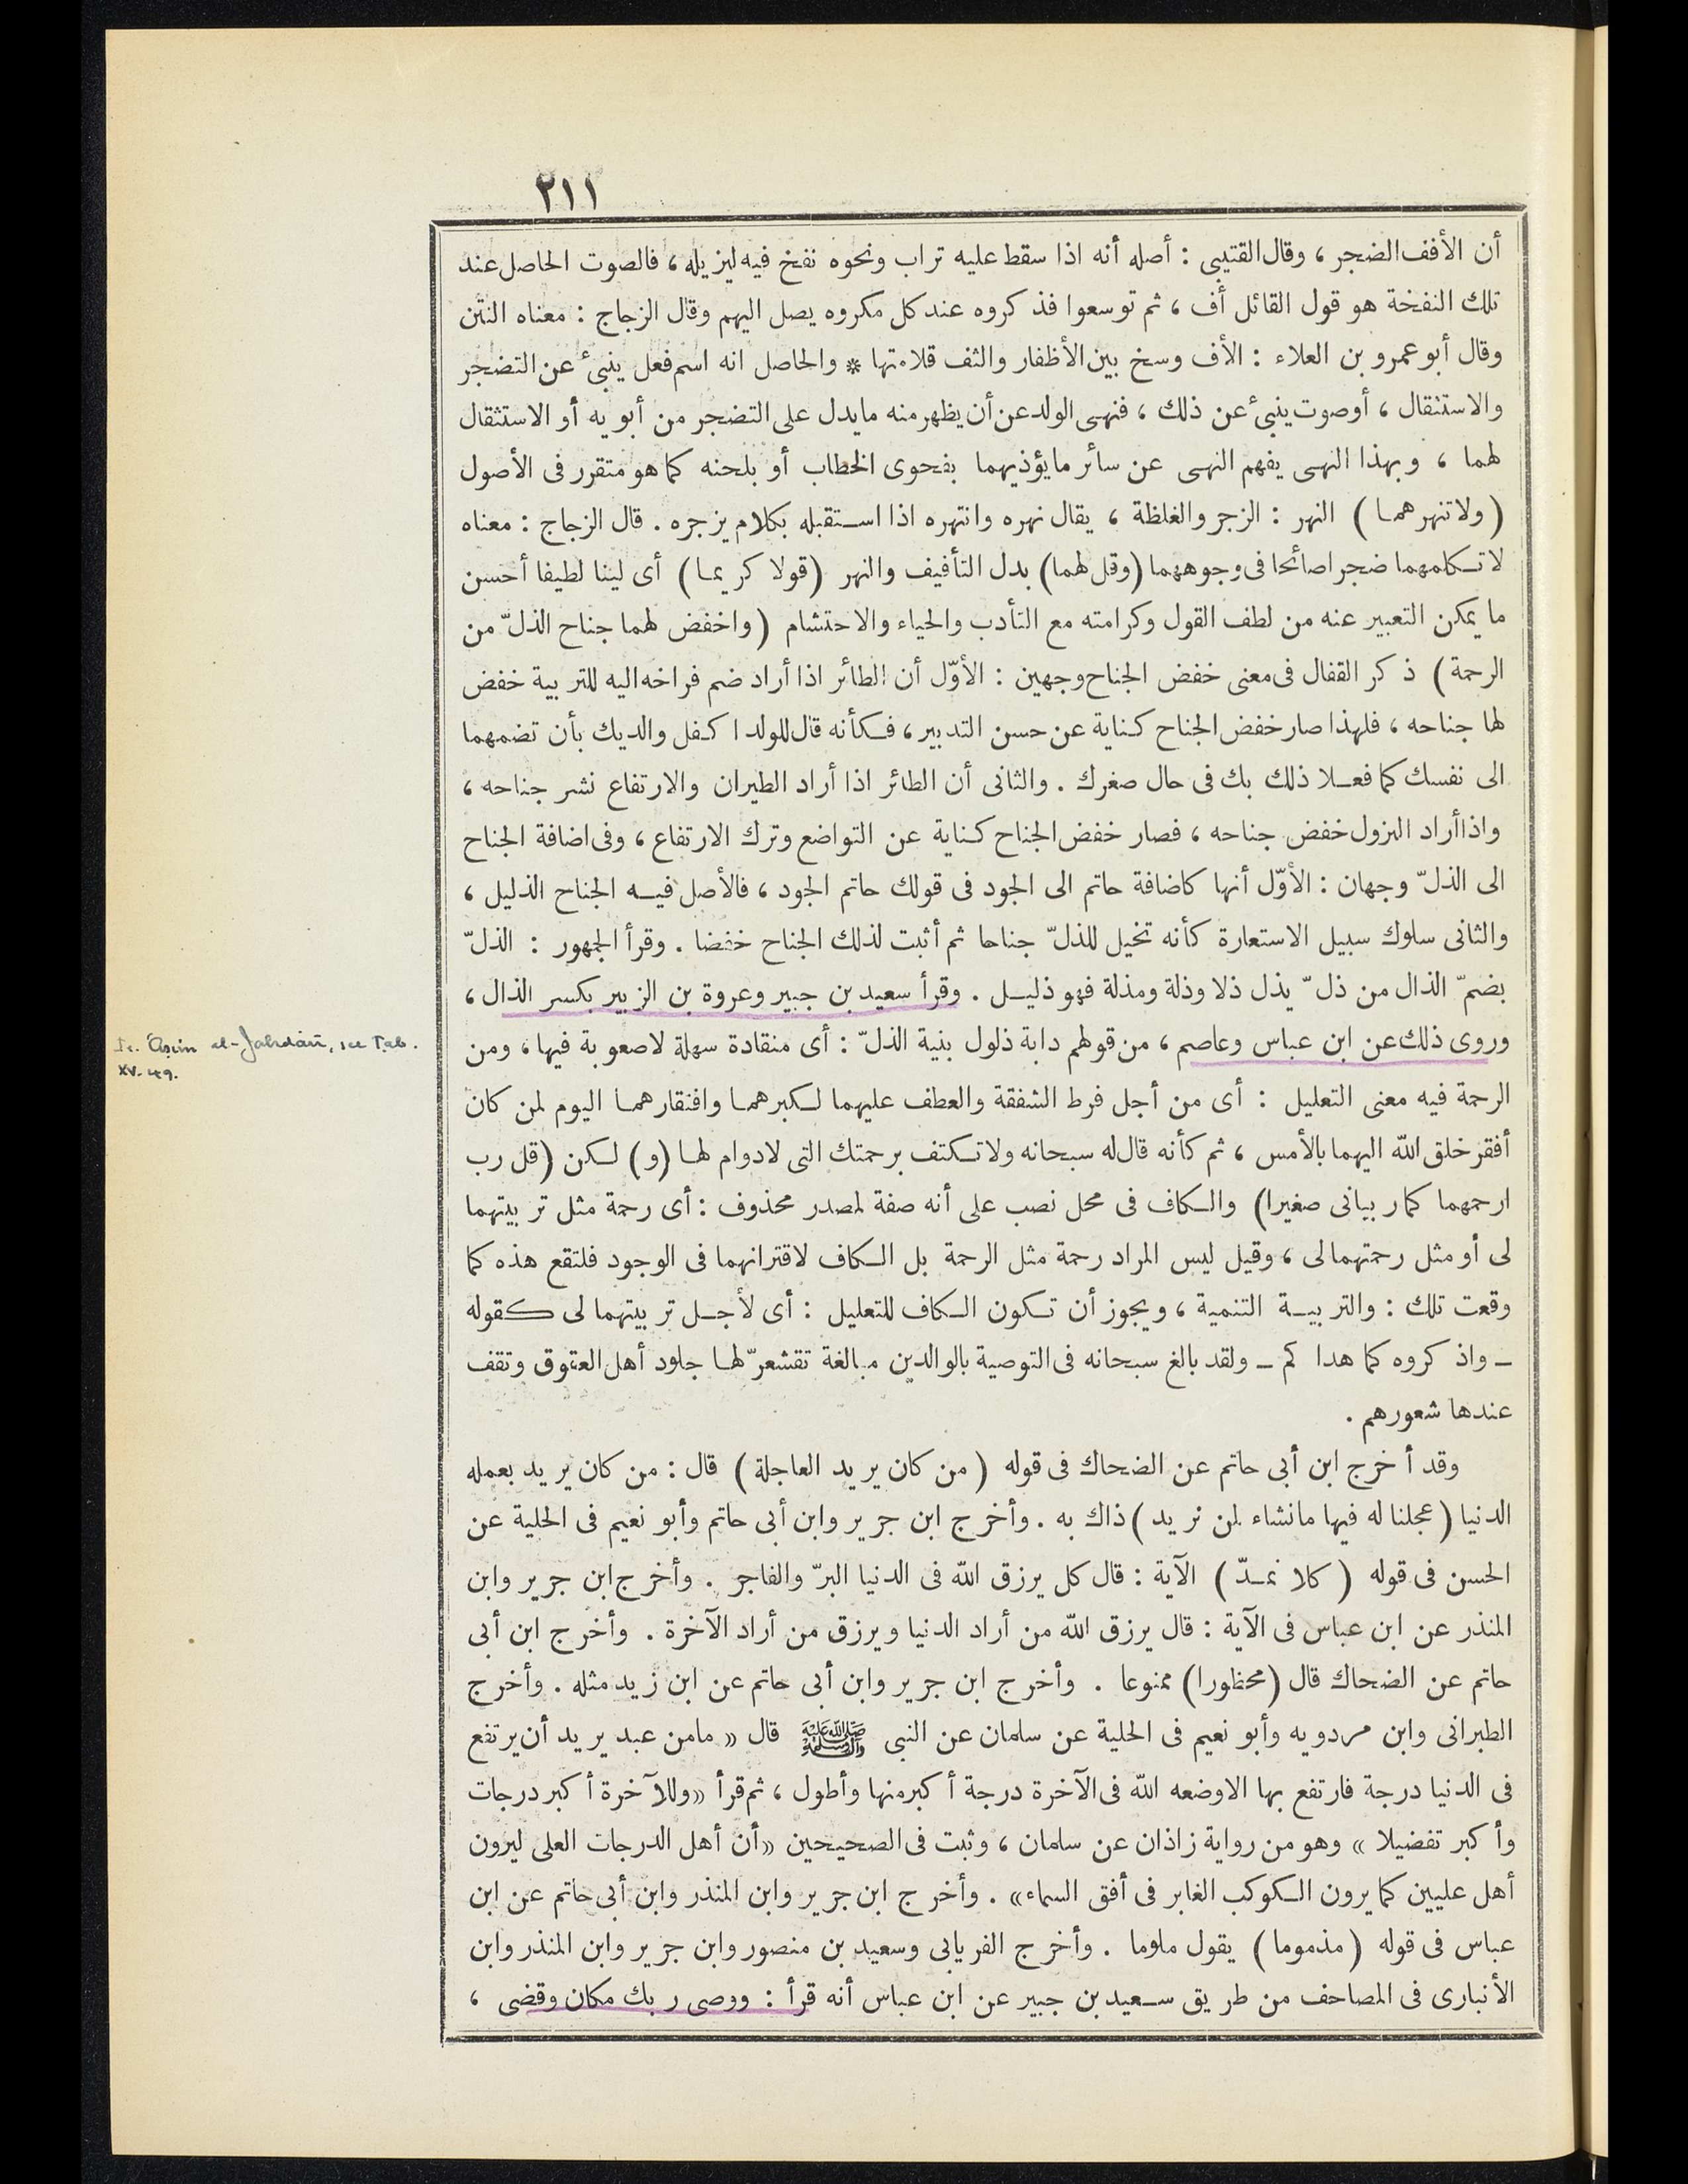 ٢١١
أن الأفف الضجر ، وقال القتيبى : أصله أنه اذا سقط عليه تراب ونحوه نفخ فيه ليزيله ، فالصوت الحاصل عند
تلك النفخة هو قول القائل أف ، ثم توسعوا فذكروه عند كل مكروه يصل اليهم وقال الزجاج : معناه النتن
وقال أبو عمرو بن العلاء : الأف وسخ بين الأظفار والثف قلامتها * والحاصل انه اسم فعل ينبئ عن التضجر
والاستثقال ، أو صوت ينبئ عن ذلك ، فنهى الولد عن أن يظهر منه ما يدل على التضجر من أبويه أو الاستثقال
لهما ، وبهذا النهى يفهم النهى عن سائر ما يؤذيهما بفحوى الخطاب أو بلحنه كما هو متقرر فى الأصول
( ولا تنهرهما ) النهر : الزجر والغلظة ، يقال نهره وانتهره اذا استقبله بكلام يزجره . قال الزجاج : معناه
لا تكلمهما ضجرا صائحا فى وجوههما (وقل لهما) بدل التأفيف والنهر (قولا كريما) أى لينا لطيفا أحسن
ما يمكن التعبير عنه من لطف القول وكرامته مع التأدب والحياء والاحتشام (واخفض لهما جناح الذلّ من
الرحمة) ذكر القفال فى معنى خفض الجناح وجهين : الأوّل أن الطائر اذا أراد ضم فراخه اليه للتربية خفض
لها جناحه ، فلهذا صار خفض الجناح كناية عن حسن التدبير ، فكأنه قال للولد اكفل والديك بأن تضمهما
الى نفسك كما فعلا ذلك بك فى حال صغرك . والثانى أن الطائر اذا أراد الطيران والارتفاع نشر جناحه ،
واذا أراد النزول خفض جناحه ، فصار خفض الجناح كناية عن التواضع وترك الارتفاع ، وفى اضافة الجناح
الى الذلّ وجهان : الأوّل أنها كاضافة حاتم الى الجود فى قولك حاتم الجود ، فالأصل فيه الجناح الذليل ،
والثانى سلوك سبيل الاستعارة كأنه تخيل للذلّ جناحا ثم أثبت لذلك الجناح خفضا . وقرأ الجمهور : الذلّ
بضمّ الذال من ذلّ يذل ذلا وذلة ومذلة فهو ذليل . وقرأ سعيد بن جبير وعروة بن الزبير بكسر الذال ،
وروى ذلك عن ابن عباس وعاصم ، من قولهم دابة ذلول بنية الذلّ : أى منقادة سهلة لاصعوبة فيها ، ومن
الرحمة فيه معنى التعليل : أى من أجل فرط الشفقة والعطف عليهما لكبرهما وافتقارهما اليوم لمن كان
أفقر خلق الله اليهما بالأمس ، ثم كأنه قال له سبحانه ولا تكتف برحمتك التى لادوام لها (و) لكن (قل رب
ارحمهما كما ربيانى صغيرا) والكاف فى محل نصب على أنه صفة لمصدر محذوف : أى رحمة مثل تربيتهما
لى أو مثل رحمتهما لى ، وقيل ليس المراد رحمة مثل الرحمة بل الكاف لاقترانهما فى الوجود فلتقع هذه كما
وقعت تلك : والتربية التنمية ، ويجوز أن تكون الكاف للتعليل : أى لأجل تربيتهما لى كقوله
ـ واذكروه كما هداكم ـ ولقد بالغ سبحانه فى التوصية بالوالدين مبالغة تقشعرّ لها جلود أهل العقوق وتقف
عندها شعورهم .
وقد أخرج ابن أبى حاتم عن الضحاك فى قوله ( من كان يريد العاجلة ) قال : من كان يريد بعمله
الدنيا (عجلنا له فيها مانشاء لمن نريد ) ذاك به . وأخرج ابن جرير وابن أبى حاتم وأبو نعيم فى الحلية عن
الحسن فى قوله ( كلا نمدّ ) الآية : قال كل يرزق الله فى الدنيا البرّ والفاجر . وأخرج ابن جرير وابن
المنذر عن ابن عباس فى الآية : قال يرزق الله من أراد الدنيا ويرزق من أراد الآخرة . وأخرج ابن أبى
حاتم عن الضحاك قال (محظورا) ممنوعا . وأخرج ابن جرير وابن أبى حاتم عن ابن زيد مثله . وأخرج
الطبرانى وابن مردويه وأبو نعيم فى الحلية عن سلمان عن النبى ﷺ قال « مامن عبد يريد أن يرتفع
فى الدنيا درجة فارتفع بها الا وضعه الله فى الآخرة درجة أكبر منها وأطول ، ثم قرأ «وللآخرة أكبر درجات
وأكبر تفضيلا » وهو من رواية زاذان عن سلمان ، وثبت فى الصحيحين «أن أهل الدرجات العلى ليرون
أهل عليين كما يرون الكوكب الغابر فى أفق السماء» . وأخرج ابن جرير وابن المنذر وابن أبى حاتم عن ابن
عباس فى قوله (مذموما) يقول ملوما . وأخرج الفريابى وسعيد بن منصور وابن جرير وابن المنذر وابن
الأنبارى فى المصاحف من طريق سعيد بن جبير عن ابن عباس أنه قرأ : ووصى ربك مكان وقضى ،
'Āṣim al-Jaḥdārī, see Ṭab.
XV. 49.